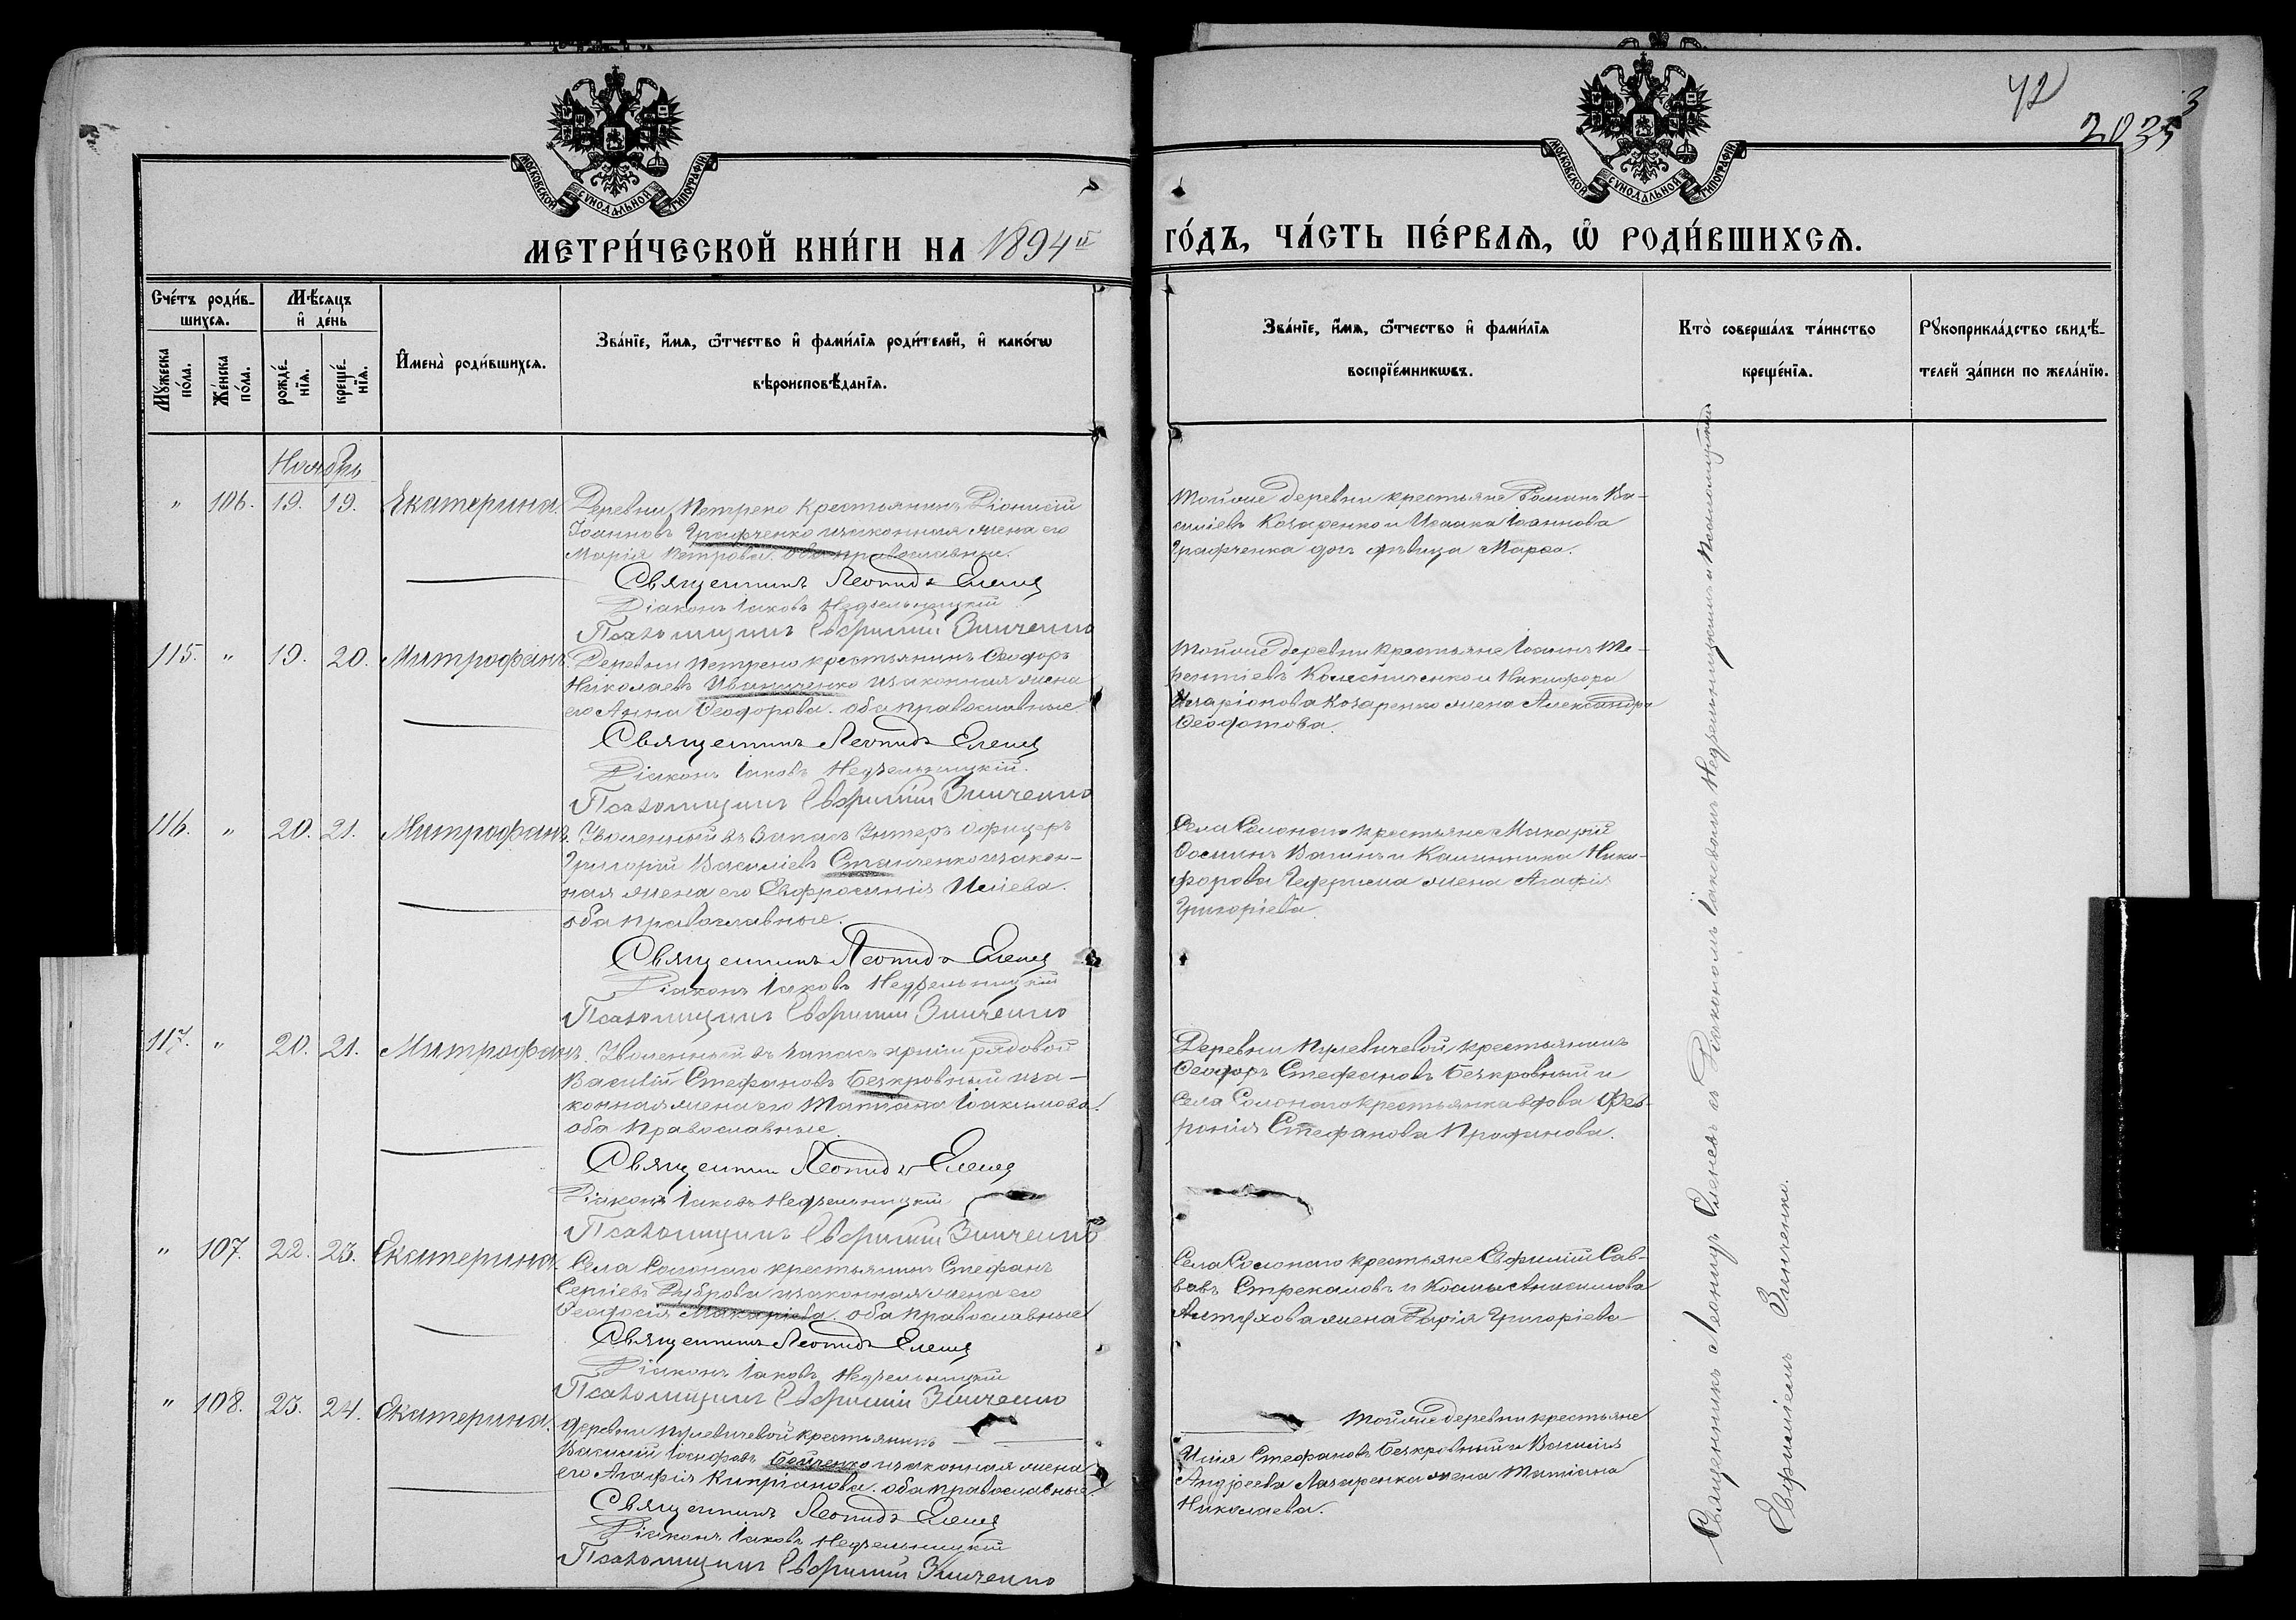 42
2035
3
МОСКОВСКОЙ СѴНОДАЛЬНОЙ ТИПОГРАФІИ
МОСКОВСКОЙ СѴНОДАЛЬНОЙ ТИПОГРАФІИ
МЕТРИ́ЧЕСКОЙ КНИ́ГИ НА 1894й ГО́ДЪ, ЧА́СТЬ ПЕ́РВАѦ, Ѽ РОДИ́ВШИХСѦ.
Сче́тъ роди́в-
шихсѧ.
Мѣ́сѧцъ
и҆ де́нь
Мꙋ́жеска по́ла.
Же́нска по́ла.
рожде́-
нїѧ.
креще́-
нїѧ.
И҆мена̀ роди́вшихсѧ.
Зва́нїе, и҆́мѧ, ѻ҆́тчество и҆ фами́лїѧ роди́телей, и҆ како́гѡ
вѣроисповѣ́данїѧ.
Зва́нїе, и҆́мѧ, ѻ҆́тчество и҆ фами́лїѧ
воспрїе́мникѡвъ.
Кто̀ соверша́лъ та́инство
креще́нїѧ.
Рꙋкоприкла́дство свидѣ́-
телей за́писи по жела́нїю.
Ноябрь
" 106. 19. 19. Екатерина.
Деревни Петрено крестьянинъ Діонисій
Іоанновъ Графченко и законная жена его
Марія Петрова. оба православные.
Священникъ Леонидъ Еленевъ
Діаконъ Іаковъ Недзельницкій
Псаломщикъ Евфимій Зинченко
Тойже деревни крестьяне Романъ Ва-
силіевъ Козаренко и Исаака Іоаннова
Графченка дочь дѣвица Марѳа.
115. " 19. 20. Митрофанъ.
Деревни Петрено крестьянинъ Ѳеодоръ
Николаевъ Иваниченко и законная жена
его Анна Ѳеодорова. оба православные.
Священникъ Леонидъ Еленевъ
Діаконъ Іаковъ Недзельницкій.
Псаломщикъ Евфимій Зинченко
Тойже деревни крестьяне Іоаннъ Те-
рентіевъ Колесниченко и Никифора
Иларіонова Козаренко жена Александра
Ѳеодотова.
116. " 20. 21. Митрофанъ.
Уволенный въ запасъ Унтеръ офицеръ
Григорій Василіевъ Станченко и закон-
ная жена его Евфросинія Иліева.
оба православные.
Священникъ Леонидъ Еленевъ
Діаконъ Іаковъ Недзельницкій
Псаломщикъ Евфимій Зинченко
Села Солонаго крестьяне Макарій
Ники-
форова жена Агафія
Григоріева.
117. " 20. 21. Митрофанъ.
Уволенный въ запасъ арміи рядовой
Василій Стефановъ Безкровный и за-
конная жена его Татіана Іоакимова.
оба православные.
Священникъ Леонидъ Еленевъ
Діаконъ Іаковъ Недзельницкій
Псаломщикъ Евфимій Зинченко
Деревни Пулевичевой крестьянинъ
Ѳеодоръ Стефановъ Безкровный и
села Солонаго крестьянка вдова Фев-
ронія Стефанова Профанова.
" 107. 22. 23. Екатерина.
Села Солонаго крестьянинъ Стефанъ
Сергіевъ Дуброва и законная жена его
Ѳеодосія Макаріева. оба православные
Священникъ Леонидъ Еленевъ
Діаконъ Іаковъ Недзельницкій
Псаломщикъ Евфимій Зинченко
Села Солонаго крестьяне Евфимій Сав-
вовъ Стрекаловъ и Космы Анисимова
Алтухова жена Дарія Григоріева
" 108. 23. 24. Екатерина.
Деревни Пулевичевой крестьянинъ
Василій Іосифовъ Бойченко и законная жена
его Агафія Кипріанова. оба православные.
Священникъ Леонидъ Еленевъ
Діаконъ Іаковъ Недзельницкій
Псаломщикъ Евфимій Зинченко
Тойже деревни крестьяне
Илія Стефановъ Безкровный и Василія
Андреева Лазаренка жена Татіана
Николаева.
Священникъ Леонидъ Еленевъ съ Діакономъ Іаковомъ Недзельницкимъ и Псаломщикомъ
Евфиміемъ Зинченко.